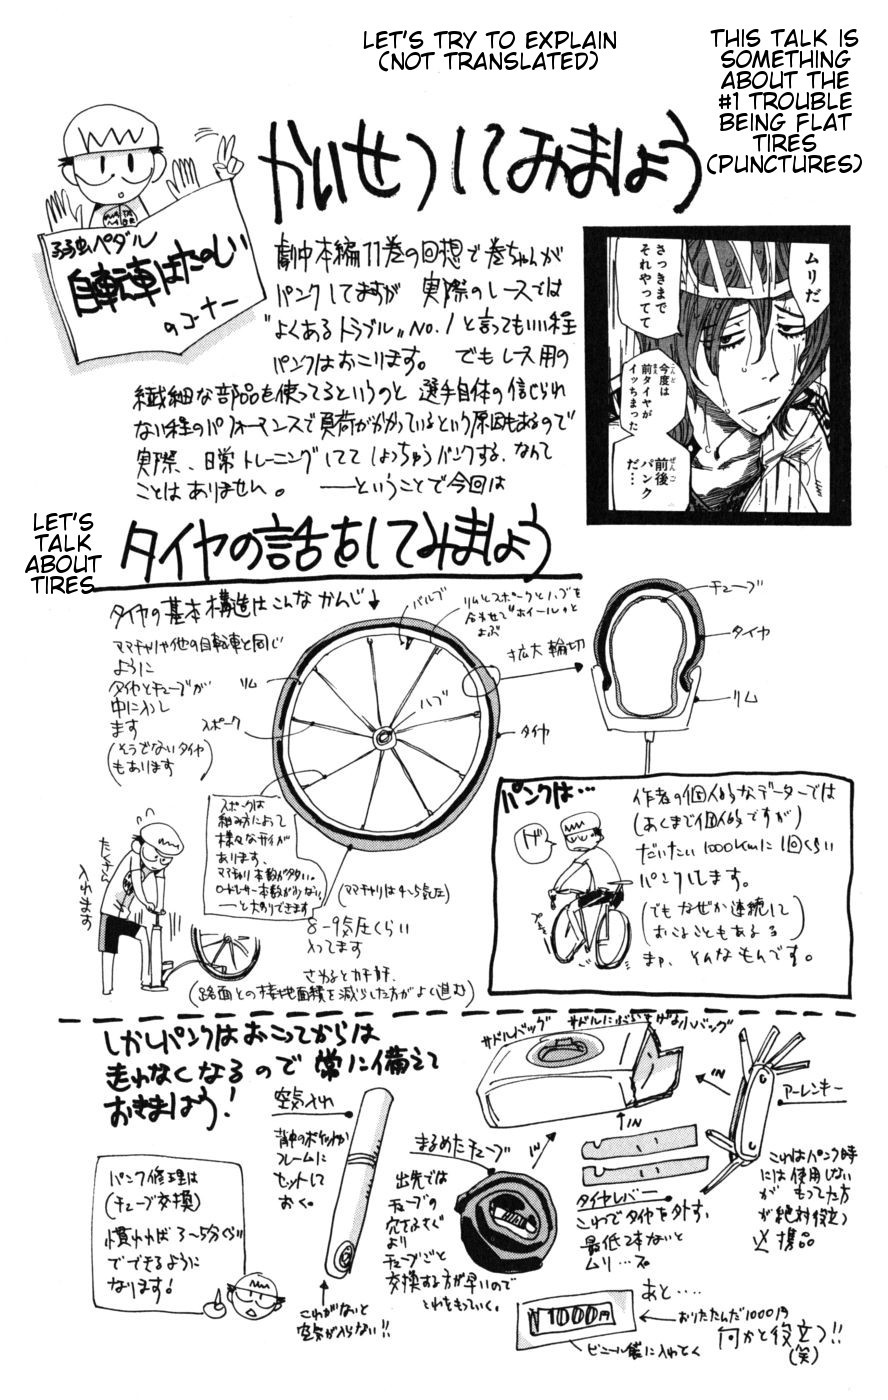 LET'S TRY TO EXPLAIN
(NOT TRANSLATED)
THIS TALK IS
SOMETHING
ABOUT THE
#1 TROUBLE
BEING FLAT
TIRES
(PUNCTURES)
かいせつしてみましょう
弱虫ペダル
自転車はたのしい
のコーナー
劇中本編11巻の回想で巻ちゃんが
パンクしてますが 実際のレースでは
"よくあるトラブル"NO.1と言ってもいい程
パンクはおこります。 でもレース用の
繊細な部品を使ってるというのと 選手自体の信じられ
ない程のパフォーマンスで負荷がかかっているという原因もあるので
実際、日常トレーニングしてて しょっちゅうパンクする、なんて
ことはありません。 ――ということで今回は
ムリだ
さっきまで
それやってて
今度は
前タイヤが
イッちまった
前後
パンク
だ…
LET'S
TALK
ABOUT
TIRES
タイヤの話をしてみましょう
タイヤの基本構造はこんなかんじ↓
ママチャリや他の自転車と同じ
ように
タイヤとチューブが
中に入し
ます
(そうでないタイヤ
もあります)
バルブ
リムとスポークとハブを
合わせて"ホイール"と
よぶ
リム
スポーク
ハブ
タイヤ
拡大 輪切
チューブ
タイヤ
リム
スポークは
組み方によって
様々なサイがが
あります、
ママチャリ本数が多い。
ロードレーサー本数が少ない。
――と大カリできます
(ママチャリは4~5気圧)
8-9気圧くらい
入ってます
さわるとカチカチ、
(路面との接地面積を減らした方がよく進む)
たくさん
入れます
パンクは…
ゲ
プシュ
作者の個人的なデーターでは
(あくまで個人的ですが)
だいたい1000kmに1回くらい
パンクします。
(でもなぜか連続して
おこることもあるる)
まァ、そんなもんです。
しかしパンクはおこってからは
走れなくなるので 常に備えて
おきましょう!
サドルバッグ
サドルにぶらさげる小バッグ
IN
IN
IN
アーレンキー
これはパンク時
には使用しない
が もってた方
が絶対役立つ
必携品
空気入れ
背中のポケットか
フレームに
セットして
おく。
これがないと
空気が入らない!!
まるめたチューブ
出先では
チューブの
穴をふさぐ
より
チューブごと
交換する方が早いので
これをもっていく。
タイヤレバー
これでタイヤを外す。
最低2本ないと
ムリ…ズ
パンク修理は
(チューブ交換)
慣れれば 3~5分くらい
でできるように
なります!
あと……
¥1000円
おりたたんだ1000円
何かと役立つ!!
(笑)
ビニール袋に入れとく